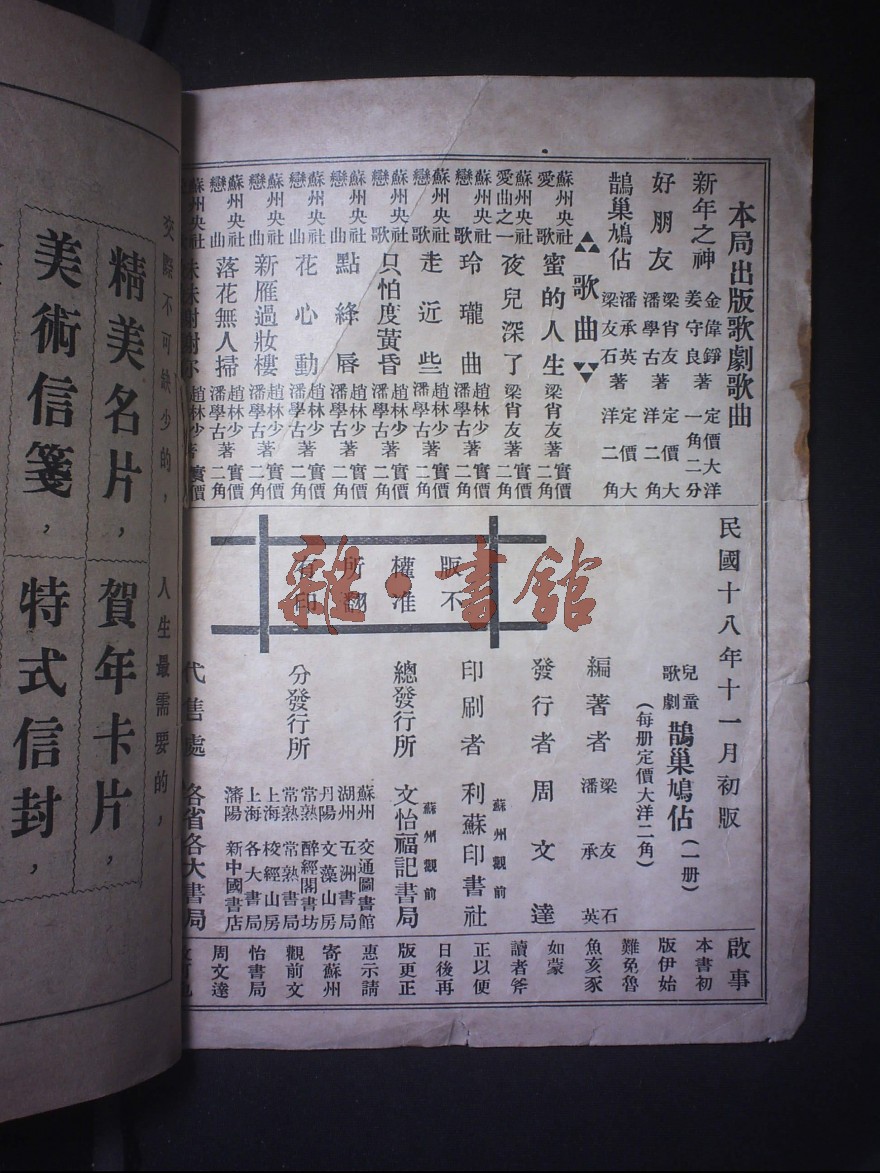 本局出版歌劇歌曲
新年之神 金偉錚 姜守良著 定價大洋一角二分
好朋友 梁肖友 潘學古著 定價大洋二角
鵲巢鳩佔 潘承英 梁友石著 定價大洋二角
歌曲
蘇州央社愛歌 蜜的人生 梁肖友著 實價二角
蘇州央社愛曲之一 夜兒深了 梁肖友著 實價二角
蘇州央社戀歌 玲瓏曲 趙林少 潘學古著 實價二角
蘇州央社戀歌 走近些 趙林少 潘學古著 實價二角
蘇州央社戀歌 只怕度黃昏 趙林少 潘學古著 實價二角
蘇州央社戀曲 點絳唇 趙林少 潘學古著 實價二角
蘇州央社戀曲 花心動 趙林少 潘學古著 實價二角
蘇州央社戀曲 新雁過妝樓 趙林少 潘學古著 實價二角
蘇州央社戀曲 落花無人掃 趙林少 潘學古著 實價二角
蘇州央社 妹妹謝謝你 趙林少 實價
民國十八年十一月初版
兒童歌劇 鵲巢鳩佔(一册)
(每册定價大洋二角)
編著者 梁友石 潘承英
發行者 周文達
印刷者 蘇州觀前 利蘇印書社
總發行所 蘇州觀前 文怡福記書局
分發行所
蘇州 交通圖書館
湖州 五洲書局
丹陽 文藻山房
常熟 醉經閣書坊
常熟 常熟書局
上海 校經山房
上海 各大書局
瀋陽 新中國書店
代售處 各省各大書局
版權所有
不准翻印
啟事
本書初
版伊始
難免魯
魚亥豕
如蒙
讀者斧
正以便
日後再
版更正
惠示請
寄蘇州
觀前文
怡書局
周文達
交際不可缺少的,人生最需要的,
精美名片,賀年卡片,
美術信箋,特式信封,
雜·書館